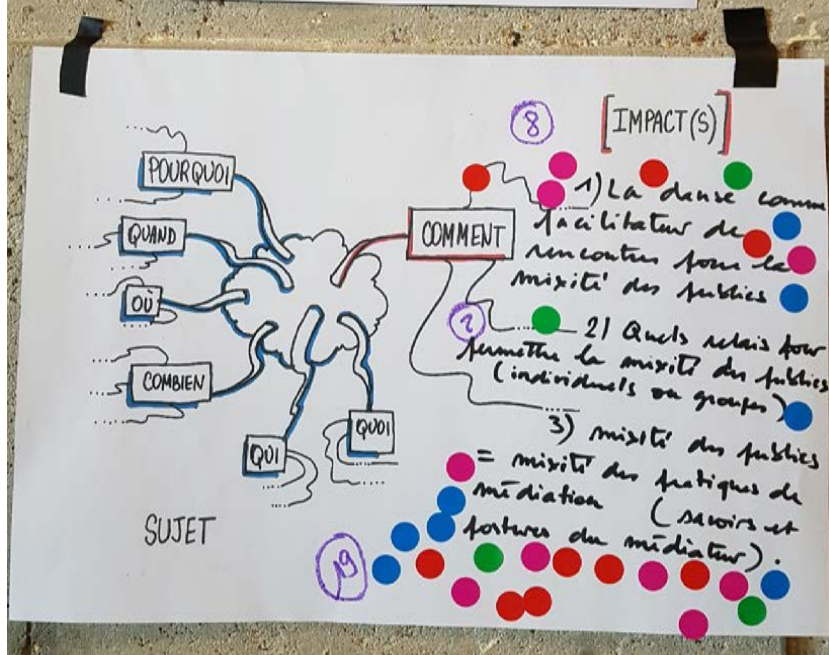 POURQUOI
QUAND
OÙ
COMBIEN
QUI
QUOI
COMMENT
SUJET
[IMPACT(S)]
8
1) La danse comme
facilitateur de
rencontres pour la
mixité des publics
2
2) Quels relais pour
permettre la mixité des publics
(individuels ou groupes)
3) mixité des publics
= mixité des pratiques de
médiation (savoirs et
postures du médiateur).
19